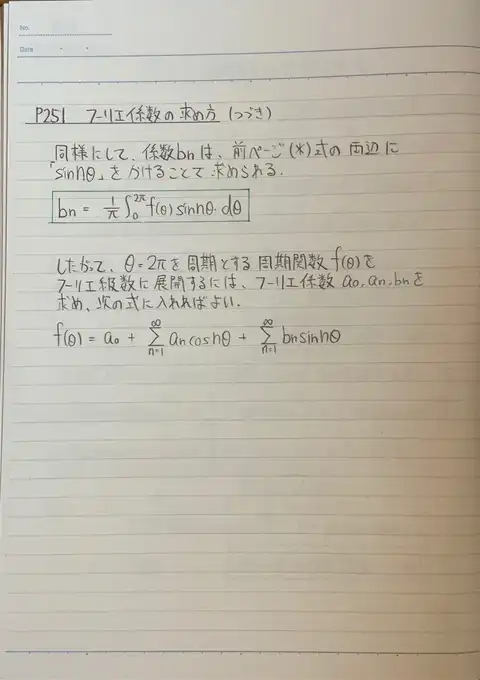 No.
Date
P251 フーリエ係数の求め方 (つづき)
同様にして、係数bnは、前ページ(*)式の両辺に
「sinnθ」をかけることで求められる。
bn = 1/π ∫₀^2π f(θ) sinnθ・dθ
したがって、θ=2πを周期とする周期関数f(θ)を
フーリエ級数に展開するには、フーリエ係数a₀,an,bnを
求め、次の式に入れればよい。
f(θ) = a₀ + ∞Σn=1 an cosnθ + ∞Σn=1 bn sinnθ